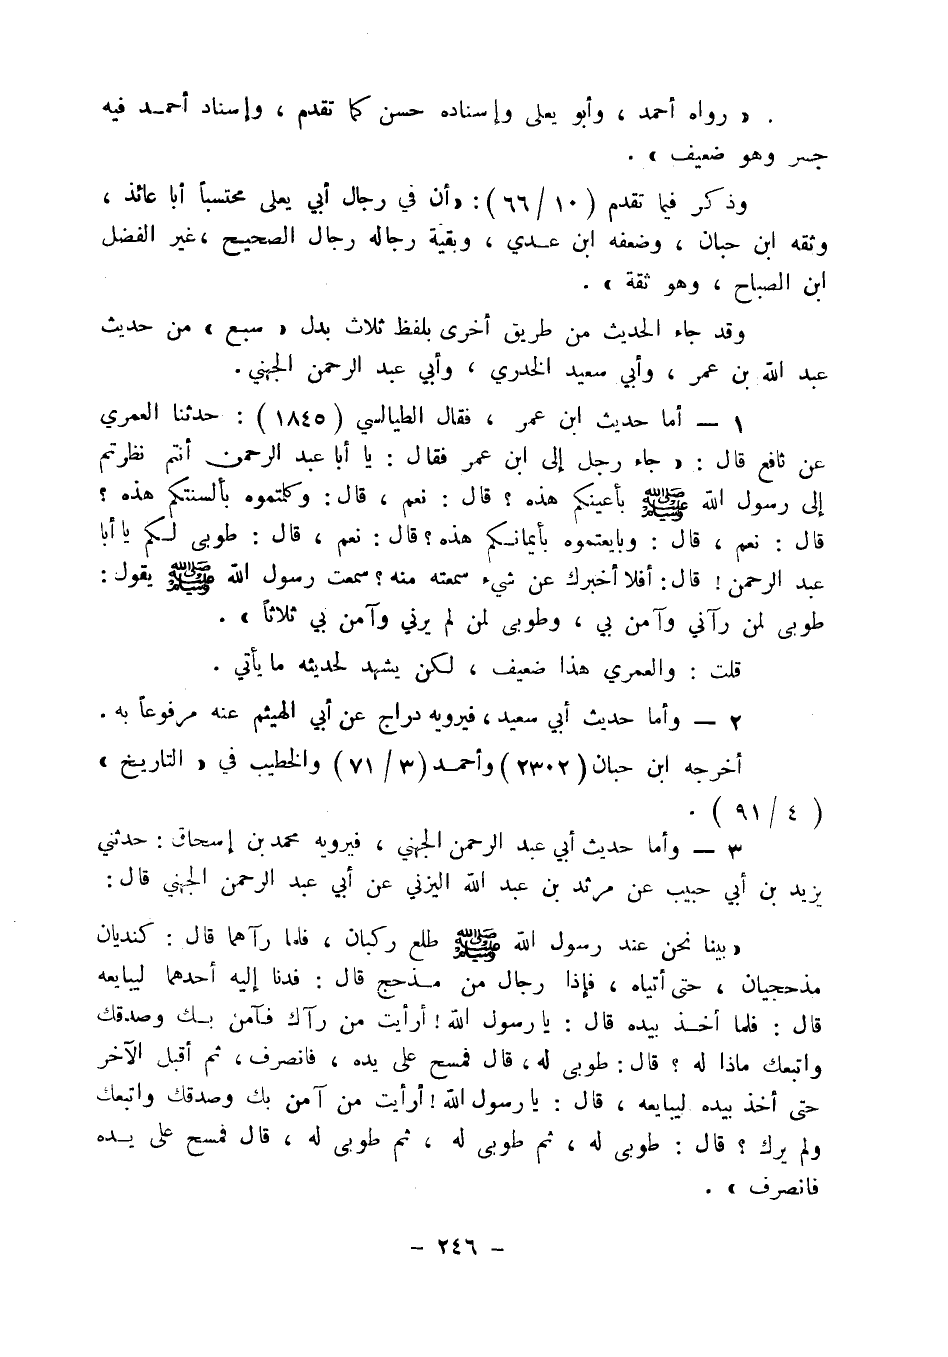 . « رواه أحمد ، وأبو يعلى وإسناده حسن كما تقدم ، وإسناد أحمد فيه
جسر وهو ضعيف » .
وذكر فيما تقدم ( ١٠ / ٦٦ ) : « أن في رجال أبي يعلى محتسباً أبا عائذ ،
وثقه ابن حبان ، وضعفه ابن عدي ، وبقية رجاله رجال الصحيح ، غير الفضل
ابن الصباح ، وهو ثقة » .
وقد جاء الحديث من طريق أخرى بلفظ ثلاث بدل « سبع » من حديث
عبد الله بن عمر ، وأبي سعيد الخدري ، وأبي عبد الرحمن الجهني .
١ – أما حديث ابن عمر ، فقال الطيالسي ( ١٨٤٥ ) : حدثنا العمري
عن نافع قال : « جاء رجل إلى ابن عمر فقال : يا أبا عبد الرحمن أنتم نظرتم
إلى رسول الله ﷺ بأعينكم هذه ؟ قال : نعم ، قال : وكلتموه بألسنتكم هذه ؟
قال : نعم ، قال : وبايعتموه بأيمانكم هذه ؟ قال : نعم ، قال : طوبى لكم يا أبا
عبد الرحمن ! قال : أفلا أخبرك عن شيء سمعته منه ؟ سمعت رسول الله ﷺ يقول :
طوبى لمن رآني وآمن بي ، وطوبى لمن لم يرني وآمن بي ثلاثاً » .
قلت : والعمري هذا ضعيف ، لكن يشهد لحديثه ما يأتي .
٢ – وأما حديث أبي سعيد ، فيرويه دراج عن أبي الهيثم عنه مرفوعاً به .
أخرجه ابن حبان ( ٢٣٠٢ ) وأحمد ( ٣ / ٧١ ) والخطيب في « التاريخ »
( ٤ / ٩١ ) .
٣ – وأما حديث أبي عبد الرحمن الجهني ، فيرويه محمد بن إسحاق : حدثني
يزيد بن أبي حبيب عن مرثد بن عبد الله اليزني عن أبي عبد الرحمن الجهني قال :
« بينا نحن عند رسول الله ﷺ طلع ركبان ، فلما رآهما قال : كنديان
مذحجيان ، حتى أتياه ، فإذا رجال من مذحج قال : فدنا إليه أحدهما ليبايعه
قال : فلما أخذ بيده قال : يا رسول الله ! أرأيت من رآك فآمن بك وصدقك
واتبعك ماذا له ؟ قال : طوبى له ، قال فمسح على يده ، فانصرف ، ثم أقبل الآخر
حتى أخذ بيده ليبايعه ، قال : يا رسول الله ! أرأيت من آمن بك وصدقك واتبعك
ولم يرك ؟ قال : طوبى له ، ثم طوبى له ، ثم طوبى له ، قال فمسح على يده
فانصرف » .
– ٢٤٦ –